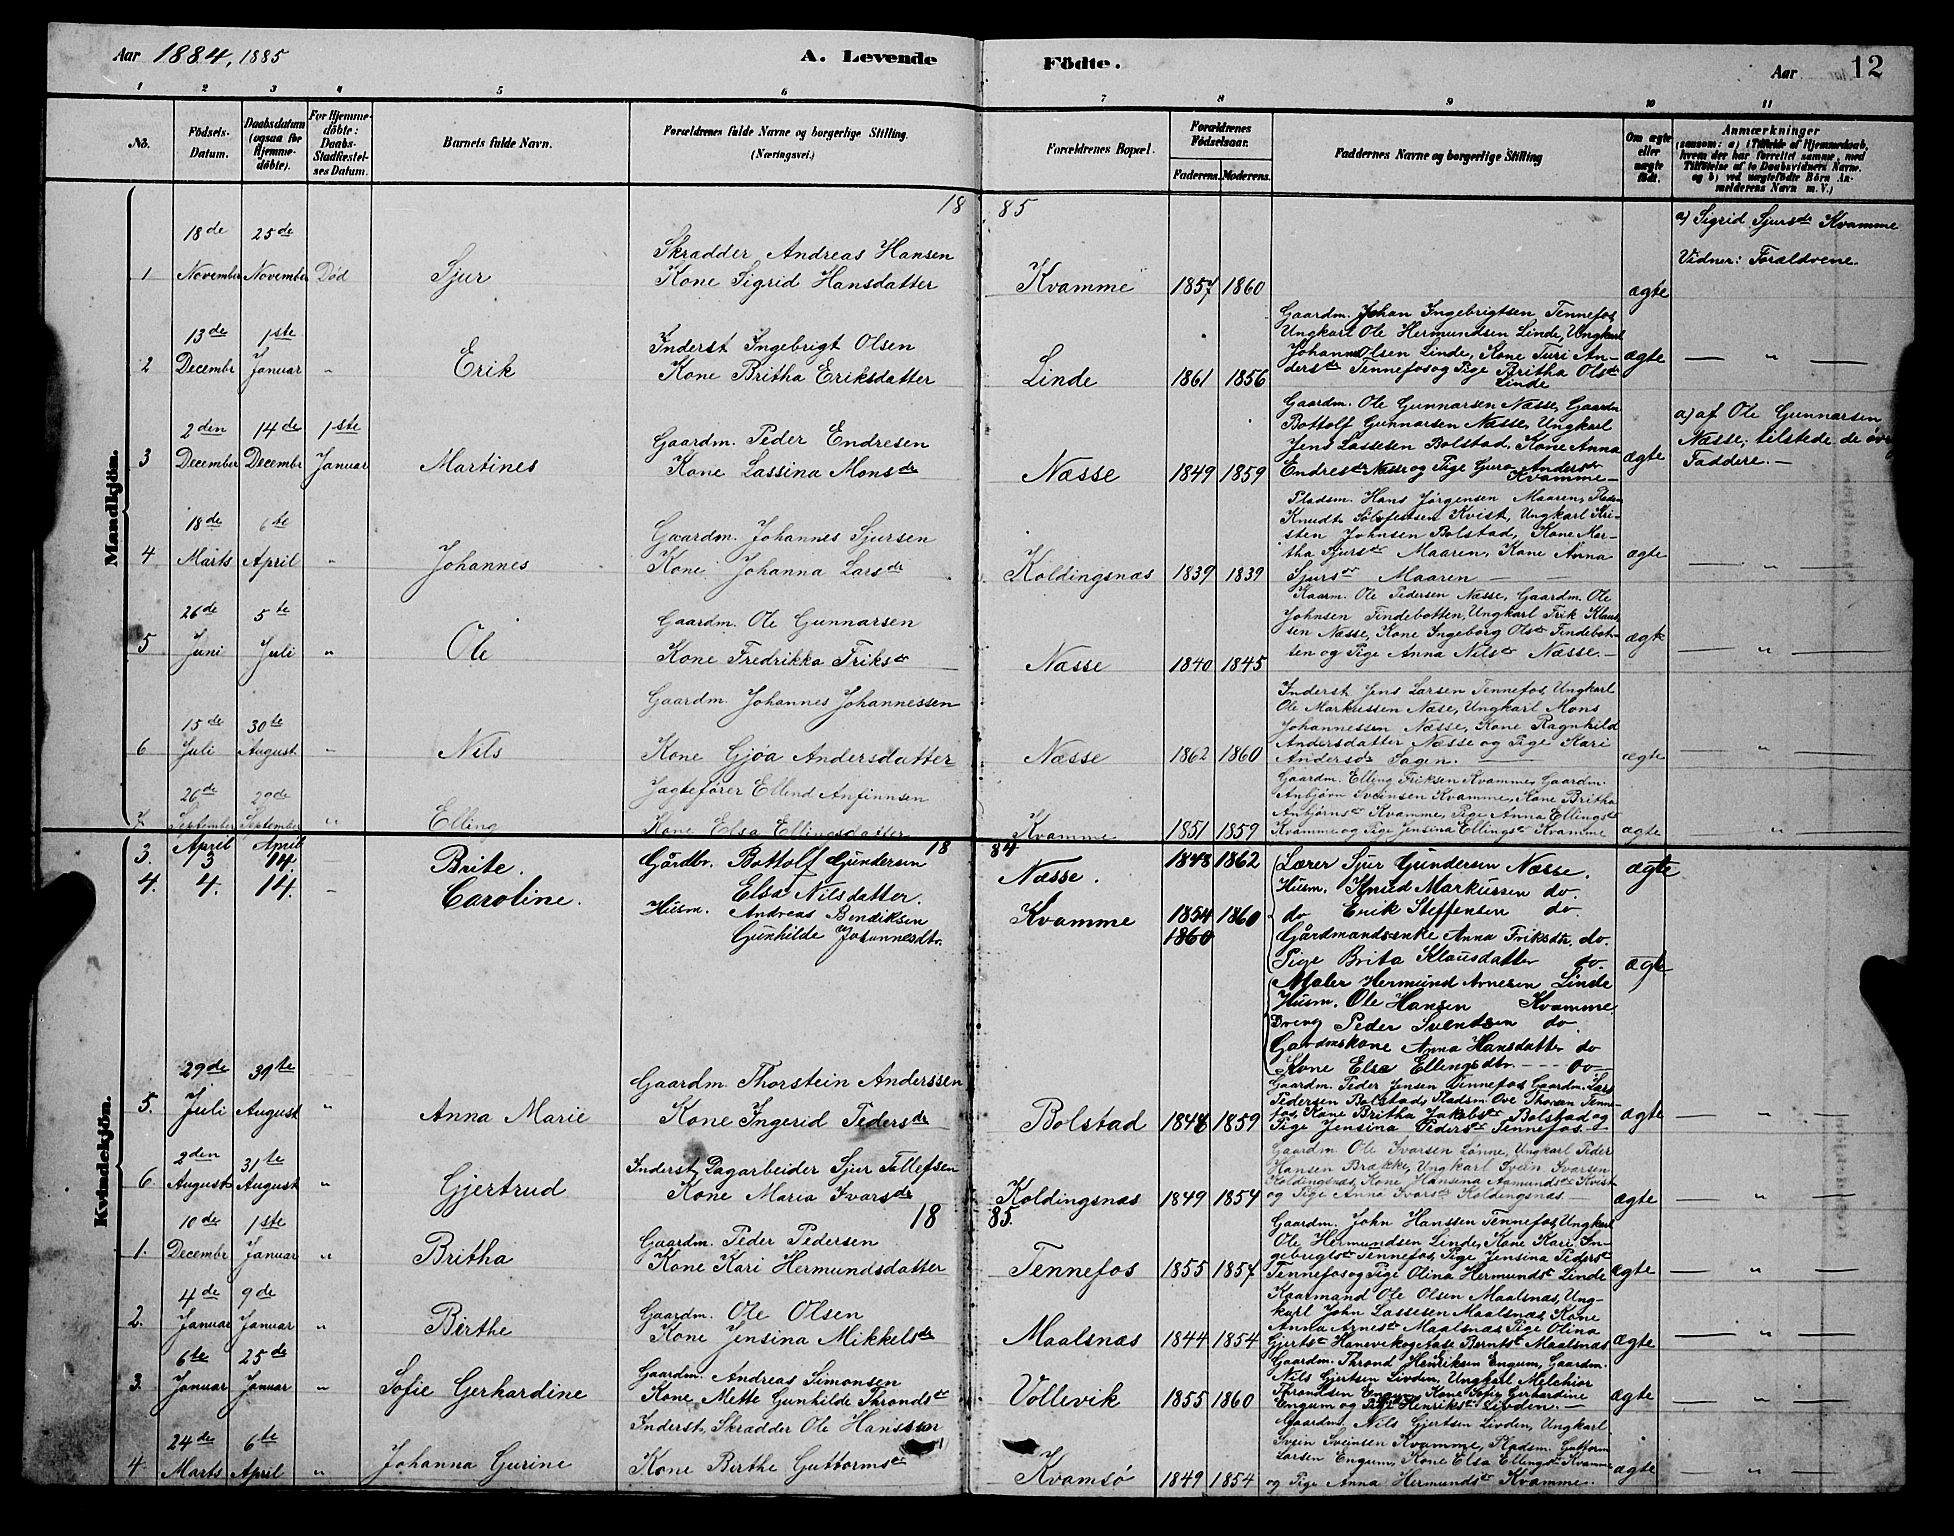 Aar 1884, 1885 A. Levende Födte. Aar 12
1 2 3 4 5 6 7 8 9 10 11
No. Födsels-Datum. Daabsdatum (ogsaa for Hjemme-döbte). For Hjemme-döbte: Daabs-Stadfæstel-ses Datum. Barnets fulde Navn. Forældrenes fulde Navne og borgerlige Stilling. (Næringsvei.) Forældrenes Bopæl. Forældrenes Födselsaar. Faderens. Moderens. Faddernes Navne og borgerlige Stilling Om ægte eller uægte födt. Anmærkninger
(saasom: a) i Tilfælde af Hjemmedaab, hvem der har forrettet samme, med Tilföielse af to Daabsvidners Navne. og b) ved uægtefödte Börn An-melderens Navn m. V.)
Mandkjön.
18 85
1 18de November 25de November Död Sjur
Skradder Andreas Hansen
Kone Sigrid Hansdatter
Kvamme 1857 1860 ægte
a) Sigrid Sjursdr Kvamme
Vidner: Foraldrene.
2 13de Decembr 1ste Januar " Erik
Inderst Ingebrigt Olsen
Kone Britha Eriksdatter
Linde 1861 1856
Gaardm. Johan Ingebrigtsen Tennefos,
Ungkarl Ole Hermundsen Linde, Ungkarl
Johann Olsen Linde, Kone Turi An-
dersdr Tennefos og Pige Britha Olsdr
Linde
ægte — " —
3 2den December 14de Decembr 1ste Januar Martines
Gaardm. Peder Endresen
Kone Lassina Monsdr
Næsse 1849 1859
Gaardm. Ole Gunnarsen Næsse, Gaardm
Bottolf Gunnarsen Næsse, Ungkarl
Jens Lassesen Bolstad, Kone Anna
Endresdr Næsse og Pige Guro Andersdr
Kvamme —
ægte
a) af Ole Gunnarsen
Næsse; tilstede de øvrig
Faddere. —
4 18de Marts 6te April " Johannes
Gaardm. Johannes Sjursen
Kone Johanna Larsdr
Koldingsnæs 1839 1839
Pladsm. Hans Jørgensen Maaren, Pladsm
Knudt Sølvfestsen Kvist, Ungkarl Kri-
sten Johnsen Bolstad, Kone Mar-
tha Sjursdr Maaren, Kone Anna
Sjursdr Maaren —
ægte — " —
5 26de Juni 5te Juli " Ole
Gaardm. Ole Gunnarsen
Kone Fredrikka Friksdr
Næsse 1840 1845
Kaarm. Ole Pedersen Næsse, Gaardm. Ole
Johnsen Findebotten, Ungkarl Frik Klaus-
sen Næsse, Kone Ingeborg Olsdr Findebot-
ten og Pige Anna Nilsdr Næsse. —
ægte — " —
6 15de Juli 30te August " Nils
Gaardm. Johannes Johannessen
Kone Gjøa Andersdatter
Næsse 1862 1860
Inderst Jens Larsen Tennefos, Ungkarl
Ole Markussen Næse, Ungkarl Mons
Johannessen Næsse, Kone Ragnhild
Andersdatter Næsse og Pige Kari
Andersdr
ægte — " —
7. 26de September September " Elling
Jagtefører Ellend Anfinnsen
Kone Elsa Ellingsdatter
Kvamme 1851 1859
Gaardm. Elling Friksen Kvamme, Gaardm.
Anbjørn Sveinsen Kvamme, Kone Britha
Anbjørnsdr Kvamme, Pige Anna Ellingsdr
Kvamme og Pige Jensina Ellingsdr Kvamme
ægte — " —
Kvindekjön.
18 84
3. April 3 April 14. — Brite.
Gårdbr. Bottolf Gundersen
Elsa Nilsdatter.
Næsse. 1848 1862
Lærer Sjur Gundersen Næsse.
Husm. Knud Markussen do.
do Erik Steffensen do.
Gårdmandsenke Anna Friksdtr. do.
Pige Brita Klausdatter do.
ægte
4. 4. 14. — Caroline.
Husm. Andreas Bendiksen
Gunhilde Johannesdtr.
Kvamme 1854 1860
1860
Maler Hermund Arnesen Linde
Husm. Ole Hansen Kvamme
Dreng Peder Svendsen do.
Gardmskone Anna Hansdatter do
Kone Elsa Ellingsdtr. - - - do —
ægte
5. 29de Juli 30te August " Anna Marie
Gaardm. Thorstein Anderssen
Kone Ingerid Pedersdr
Bolstad 1848 1859
Gaardm. Peder Jensen Tennefos, Gaardm. Lars
Pedersen Bolstad, Pladsm. Ove Thoman Tenne-
fos, Kone Britha Jakobsdr Bolstad og
Pige Jensina Pedersdr Tennefos. —
ægte — " —
6. 2den August 31te August " Gjertrud
Inderst, Dagarbeider Sjur Tollefsen
Kone Maria Ivarsdr
Koldingsnæs 1849 1854
Gaardm. Ole Ivarsen Lønne, Ungkarl Peder
Hansen Brække, Ungkarl Svein Ivarsen
Koldingsnæs, Kone Hansina Aamundsdr Kvist
og Pige Anna Ivarsdr Koldingsnæs.
ægte — " —
18 85.
1. 10de Decembr 1ste Januar " Britha
Gaardm. Peder Pedersen
Kone Kari Hermundsdatter
Tennefos 1855 1857
Gaardm. John Hanssen Tennefos, Ungkarl
Ole Hermundsen Linde, Kone Kari In-
gebrigtsdr Tennefos, Pige Jensina Pedersdr
Tennefos og Pige Olina Hermundsdr Linde
ægte — " —
2. 4de Januar 9de Januar " Birthe
Gaardm. Ole Olsen
Kone Jensina Mikkelsdr
Maalsnæs 1844 1854
Kaarmand Ole Olsen Maalsnæs, Ung-
karl John Lassesen Maalsnæs, Kone
Anna Arnesdr Maalsnæs, Pige Olina
Gjertsdr Berntsdr Maalsnæs
ægte — " —
3. 6te Januar 25de Januar " Sofie Gerhardine
Gaardm. Andreas Simonsen
Kone Mette Gunhilde Throndsdr
Vollevik 1855 1860
Gaardm. Thrond Henriksen Engum, Gaardm.
Nils Gjertsen Livden, Ungkarl Melchior
Throndsen Engum, Kone Sofie Gerhardine
Engum og Henriksdr Livden. —
ægte — " —
4. 24de Marts 6te April " Johanna Gurine
Inderst, Skradder Ole Hanssen
Kone Birthe Guttormsdr
Kvamsö 1849 1854
Gaardm. Nils Gjertsen Livden, Ungkarl
Svein Sveinsen Kvamme, Pladsm. Guttorm
Larsen Engum, Kone Elsa Ellingsdr Kvamme
og Pige Anna Hermundsdr Kvamme.
ægte — " —